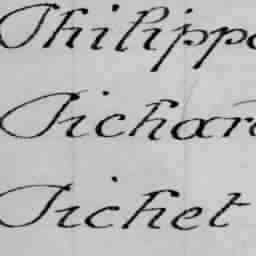 Philippo
Pichard
Pichet